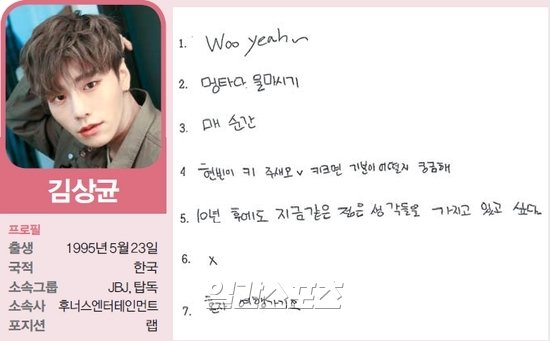 김상균
프로필
출생 1995년 5월 23일
국적 한국
소속그룹 JBJ, 탑독
소속사 후너스엔터테인먼트
포지션 랩
1. Woo yeah~
2. 멍타다 물마시기
3. 매 순간
4 현빈이 키 주세요 키크면 기분이 어떨지 궁금해
5. 10년 후에도 지금같은 젊은 생각들을 가지고 있고 싶다.
6. x
7. 혼자 여행가기
일간스포츠